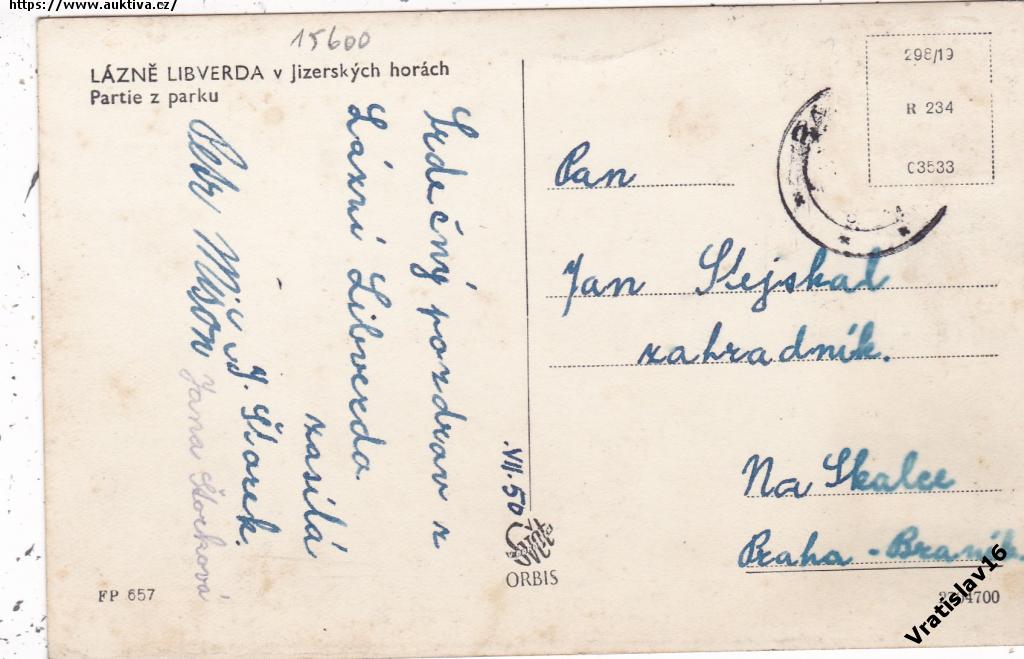 https://www.auktiva.cz/
15600
LÁZNĚ LIBVERDA v Jizerských horách
Partie z parku
Srdečný pozdrav z
Lázní Libverda
zasílá
J. Štorek.
Jana Štorková
VII.50
ORBIS
FP 657
298/19
R 234
C3533
Pan
Jan Stejskal
zahradník.
Na Skalce
Praha - Braník.
Vratislav16